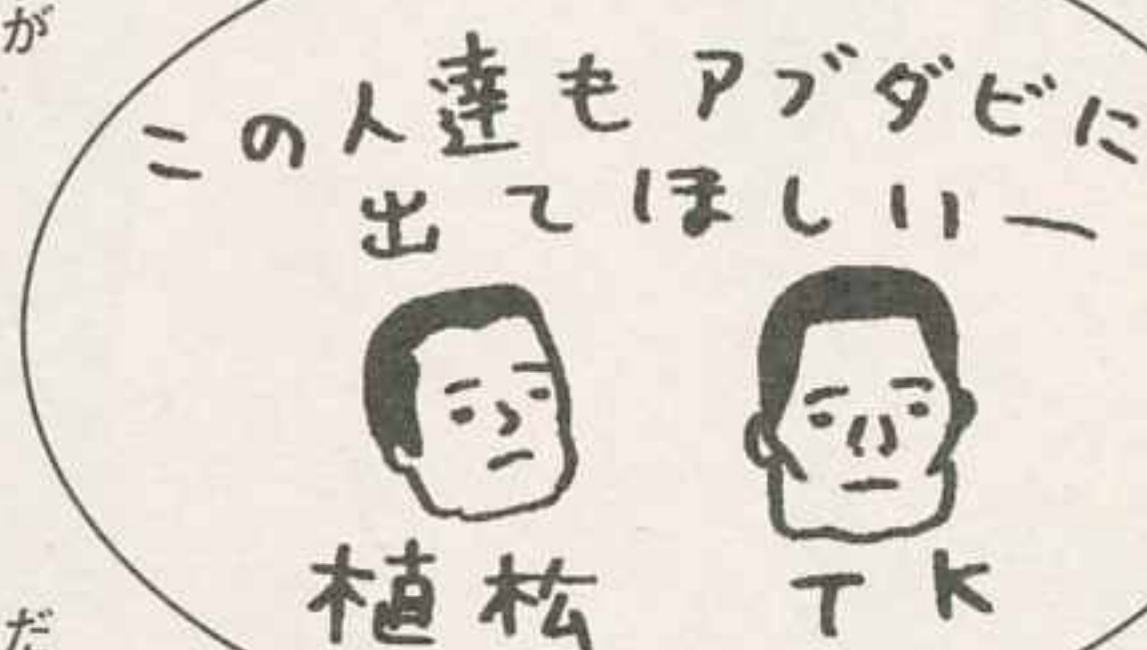 が
この人達もアブダビに
出てほしいー
植松
TK
だ